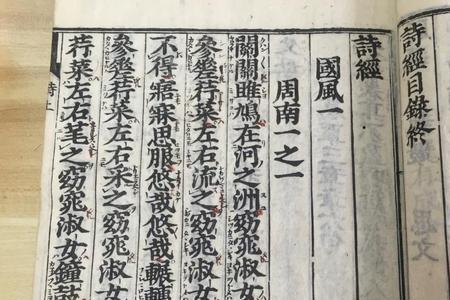 詩經目錄終
詩經
國風一
周南一之一
關關雎鳩在河之洲窈窕淑女
參差荇菜左右流之窈窕淑女
不得寤寐思服悠哉悠哉輾轉
參差荇菜左右采之窈窕淑女
荇菜左右芼之窈窕淑女鐘鼓
詩上